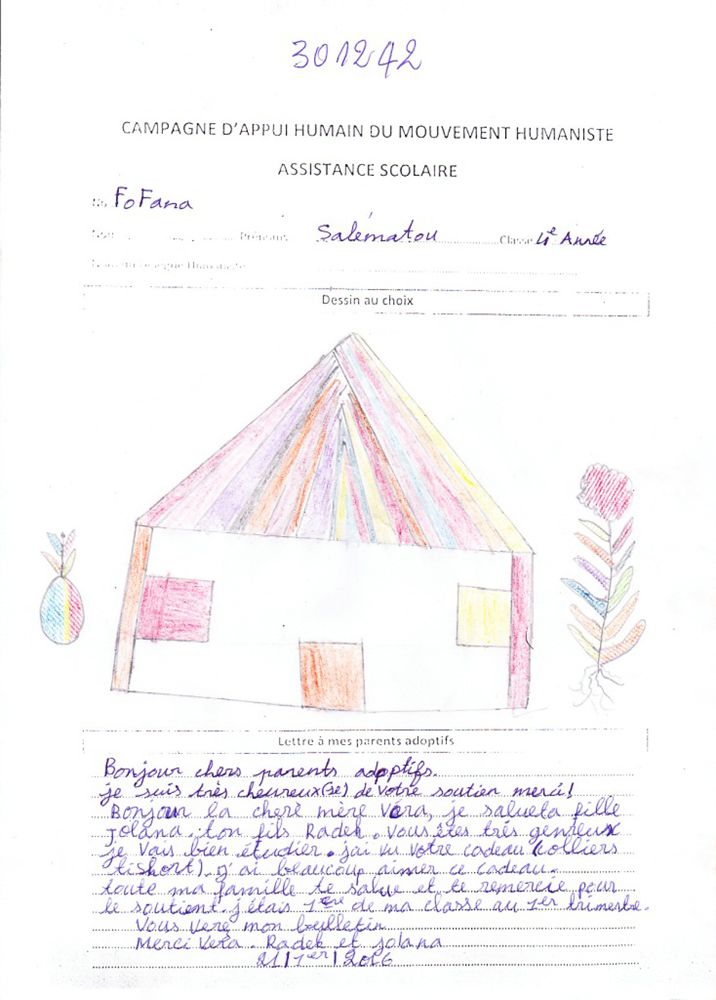 301242
CAMPAGNE D'APPUI HUMAIN DU MOUVEMENT HUMANISTE
ASSISTANCE SCOLAIRE
FoFana
Prénoms Salématou Classe 4e Année
Dessin au choix
Lettre à mes parents adoptifs
Bonjour chers parents adoptifs.
je suis très cheureux(se) de votre soutien merci!
Bonjour la chere mère Véra, je salue la fille
Jolana. ton fils Radek. Vous êtes très genreux
je vais bien étudier. j'ai vu votre cadeau (colliers
tiShort). g'ai beaucoup aimer ce cadeau.
toute ma famille te salue et te remercie pour
le soutient. j'étais 1ère de ma classe au 1er trimestre.
Vous veré mon bulletin
Merci Vera. Radek et jolana
21/1er/2016